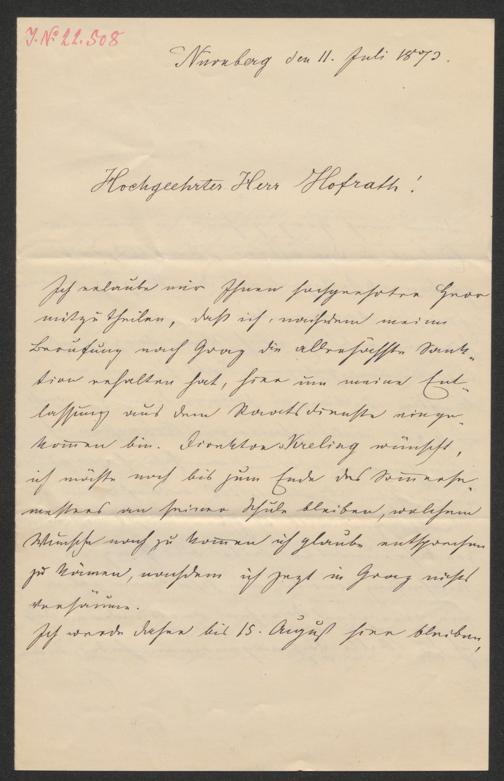 J. № 22.508
Nürnberg den 11. Juli 1873.
Hochgeehrter Herr Hofrath!
Ich erlaube mir Ihnen hochgeehrter Herr
mitzutheilen, daß ich, nachdem meine
Berufung nach Graz die allerhöchste Sank-
tion erhalten hat, hier um meine Ent-
lassung aus dem Staatsdienste einge-
kommen bin. Direktor Kreling wünscht,
ich möchte noch bis zum Ende des Sommerse-
mesters an seiner Schule bleiben, welchem
Wunsche nach zu kommen ich glaube entsprechen
zu können, nachdem ich jezt in Graz nichts
versäume.
Ich werde daher bis 15. August hier bleiben,